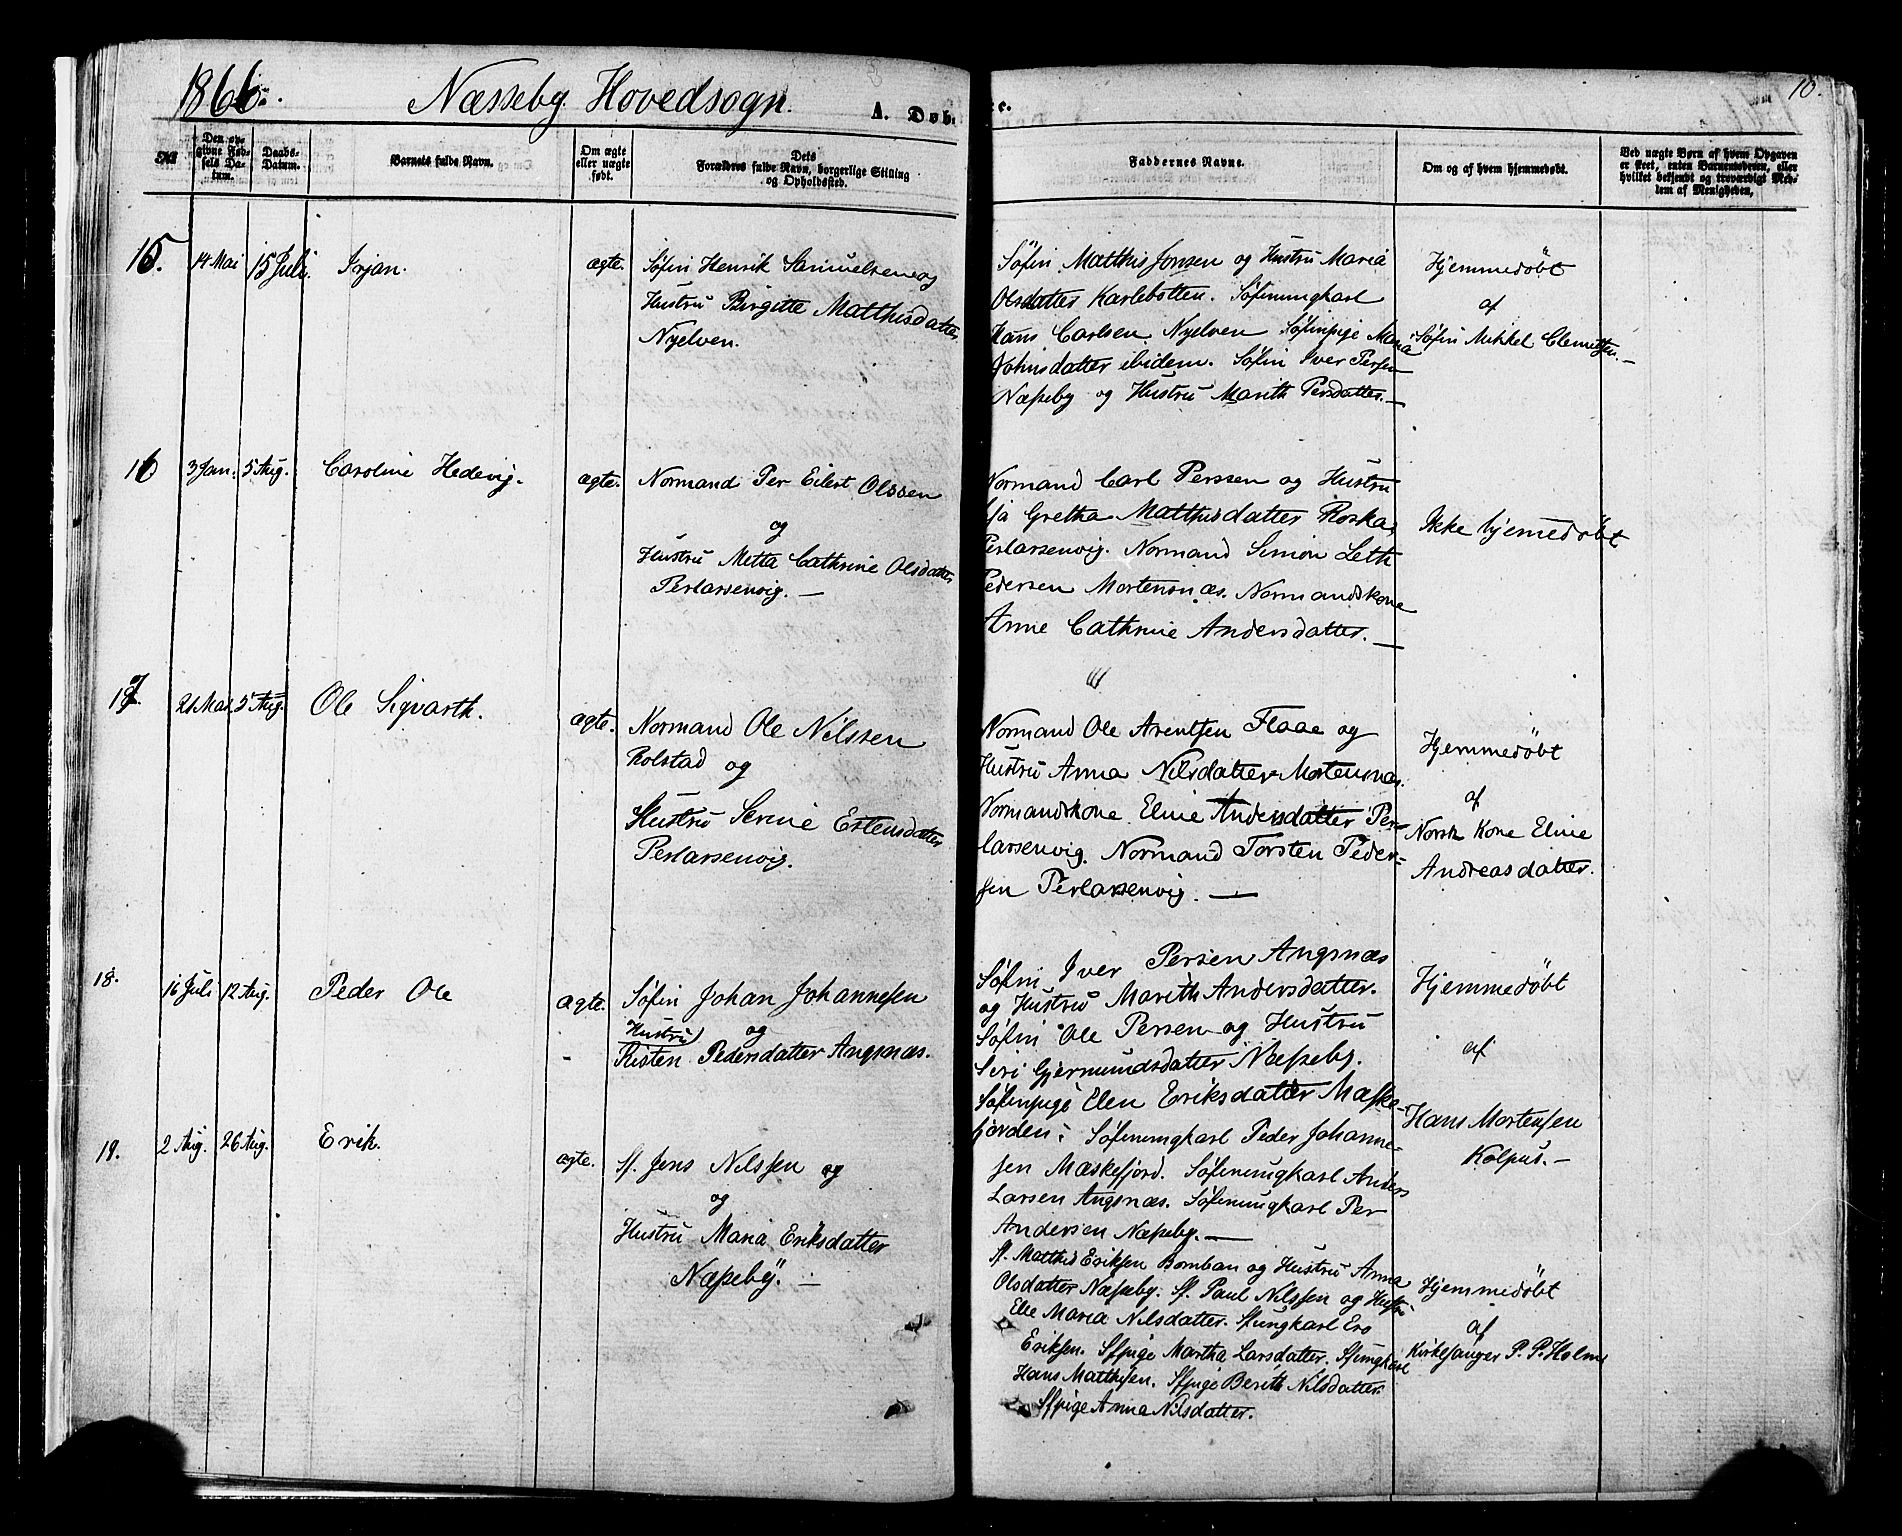 1866. Næsseby Hovedsogn. A. Døb- te. 10.
No.
Den opgivne Fødsels Datum.
Daabs-Datum.
Barnets fulde Navn.
Om ægte eller uægte født.
Dets Forældres fulde Navn, borgerlige Stilling og Opholdssted.
Faddernes Navne.
Om og af hvem hjemmedøbt.
Ved uægte Børn af hvem Opgaven er skeet, enten Barnemoderen, eller hvilket bekjendt og troværdigt Medlem af Menigheden.
15. 14 Mai 15 Juli. Irjan. ægte.
Søfin Henrik Samuelsen og
Hustru Birgitte Matthisdatter
Nyelven.
Søfin Matthis Jonsen og Hustru Maria
Olsdatter Karlebotten. Søfinungkarl
Hans Carlsen Nyelven Søfinpige Maria
Johnsdatter ibidem. Søfin Iver Persen
Næsseby og Hustru Marith Persdatter. —
Hjemmedøbt
af
Søfin Mikkel Clemetsen. —
16 3 Jan. 5 Aug. Caroline Hedevig. ægte.
Normand Per Eilert Olssen
og
Hustru Metta Cathrine Olsdatter
Perlarsenvig. —
Normand Carl Perssen og Hustru
Gretha Matthisdatter Roska,
Perlarsenvig. Normand Simon Leth
Pedersen Mortensnæs. Normandskone
Anne Cathrine Andersdatter. —
Ikke hjemedøbt
17. 21 Mai. 5 Aug. Ole Sigvarth. ægte.
Normand Ole Nilssen
Rolstad og
Hustru Serine Estensdatter
Perlarsenvig.
Normand Ole Arentsen Flaae og
Hustru Anna Nilsdatter Mortensnæs.
Normandskone Eline Andersdatter Per-
larsenvig. Normand Torsten Peder-
sen Perlarsenvig. —
Hjemmedøbt
af
Norsk Kone Eline
Andreasdatter.
18. 16 Juli 12 Aug. Peder Ole ægte.
Søfin Johan Johannesen
og
Hustru
Risten Pedersdatter Angsnæs.
Søfin Iver Persen Angsnæs
og Hustru Marith Andersdatter.
Søfin Ole Persen og Hustru
Siri Gjermundsdatter Næsseby.
Søfinpige Elen Eriksdatter Mæske-
fjorden. Søfinungkarl Peder Johanne-
sen Mæskefjord. Søfinungkarl Anders
Larsen Angsnæs. Søfinungkarl Per
Andersen Næsseby. —
Hjemmedøbt
af
Hans Mortensen
Kolpus. —
19. 2 Aug. 26 Aug. Erik. ægte.
Sf. Jens Nilssen og
og
Hustru Maria Eriksdatter
Næsseby. —
Sf. Matthis Eriksen Bomban og Hustru Anna
Olsdatter Næsseby. Sf. Paul Nilssen og Hustru
Ele Maria Nilsdatter. Sfungkarl Ero
Eriksen. Sfpige Martha Larsdatter. Sfungkarl
Hans Mathisen. Sfpige Berith Nilsdatter
Sfpige Anna Nilsdatter.
Hjemmedøbt
af
Kirkesanger P. P. Holm